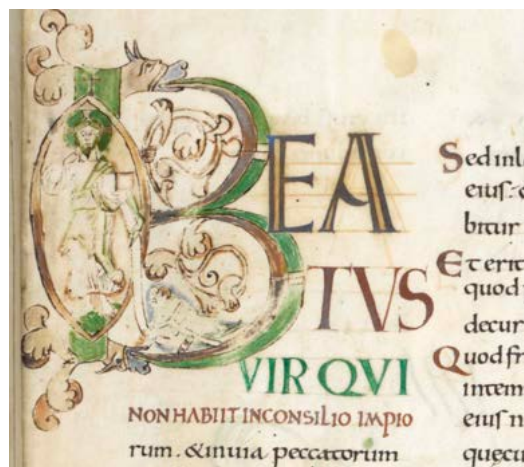 BEA
TVS
VIR QVI
NON HABIIT IN CONSILIO IMPIO
rum. & in uia peccatorum
Sed in l
eius. 
bitur
Et erit
quod
decur
Quod fr
intem
eius n
quęcu